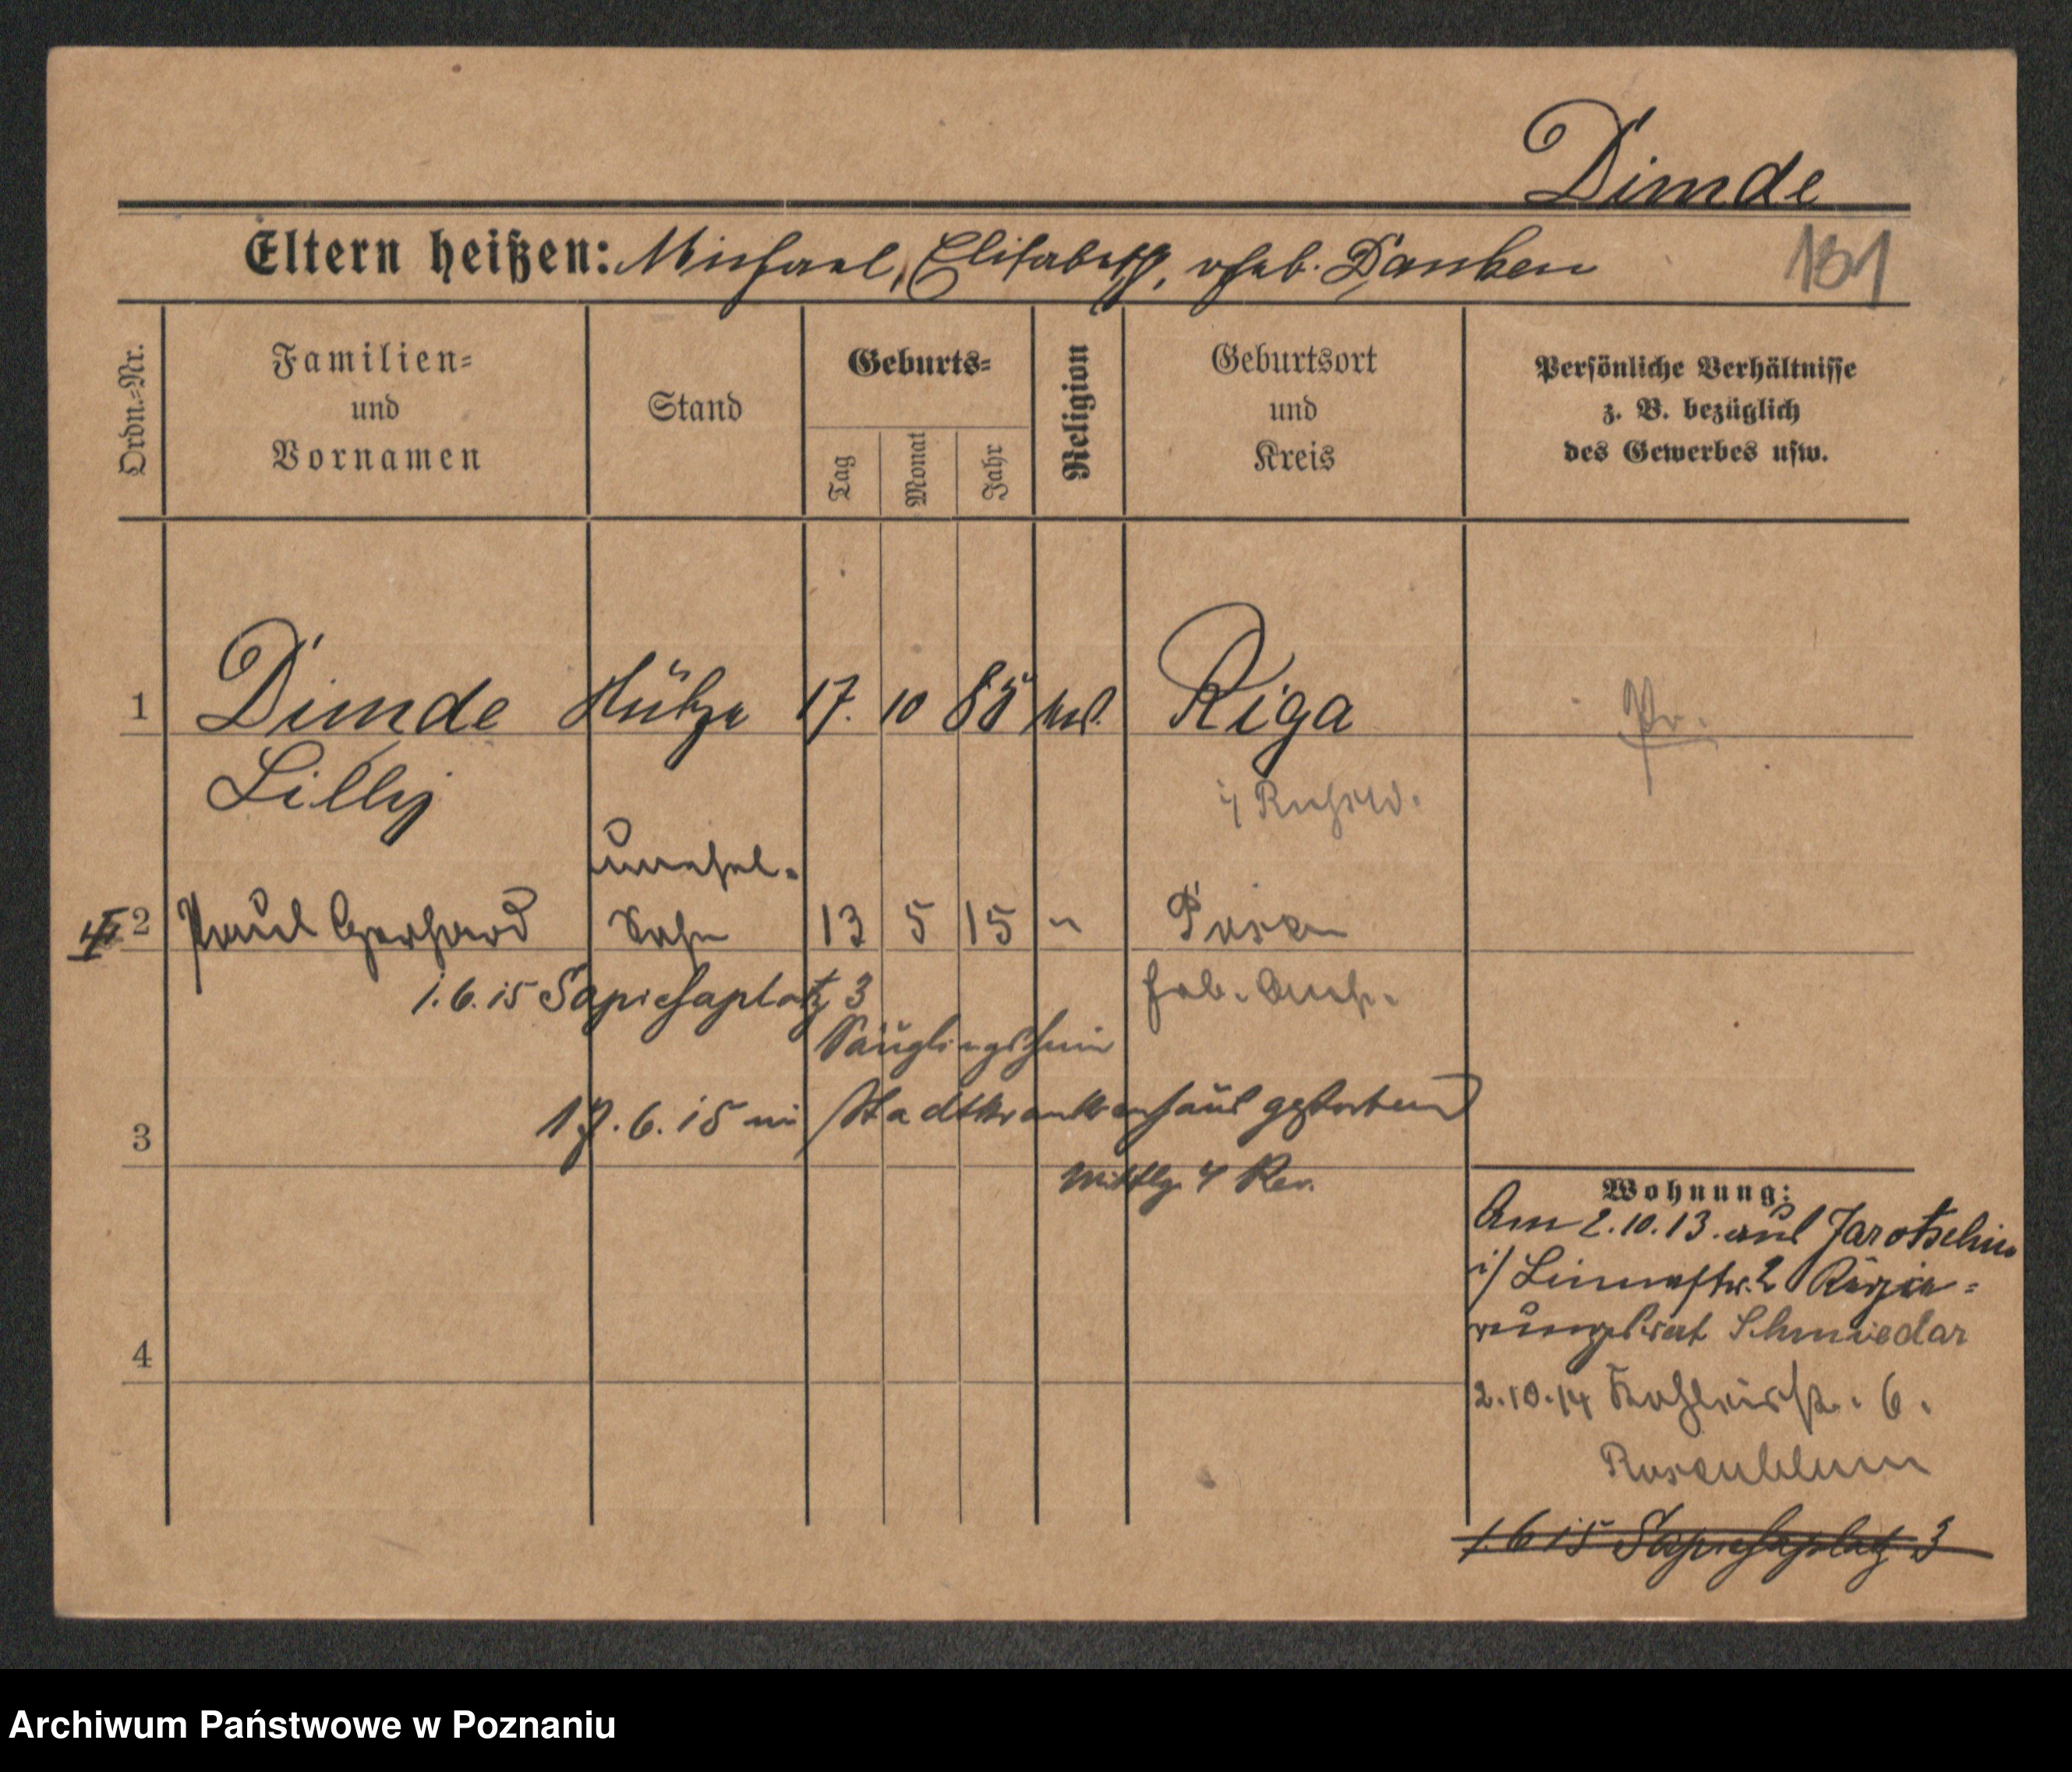 Dimde
Eltern heißen: Michael, Elisabeth, geb. Danken
Ordn.=Nr.
Familien=
und
Vornamen
Stand
Geburts=
Tag
Monat
Jahr
Religion
Geburtsort
und
Kreis
Persönliche Verhältnisse
z. B. bezüglich
des Gewerbes usw.
1 Dimde Stütze 17. 10 85 Riga
Lilly
unehel.
2 Paul Gerhard Sohn 13 5 15 " Posen
1.6.15 Sapiehaplatz 3
Geb. Ansp.
Säuglingsheim
3 17.6.15 im Stadtkrankenhaus gestorben
Mittlg. 4 Rev.
4
Wohnung:
Am 2.10.13. aus Jarotschin
Linnestr. 2 Regie=
rungsrat Schmiedar
2.10.14 6.
Rosenblum
1.6 15 Sapiehaplatz 3
Archiwum Państwowe w Poznaniu